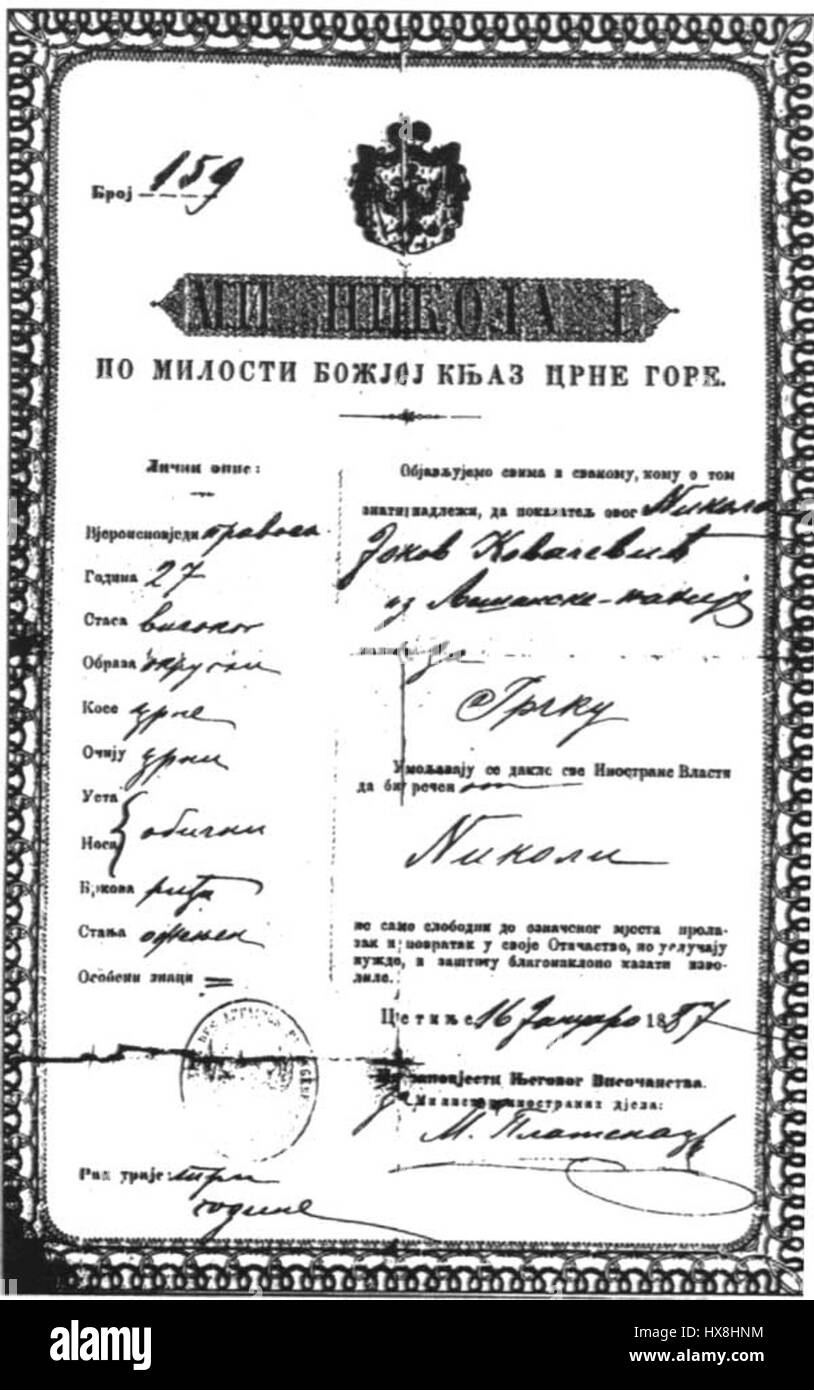 Број 159
МИ НИКОЛА I.
ПО МИЛОСТИ БОЖЈОЈ КЊАЗ ЦРНЕ ГОРЕ.
Лични опис:
Вјероисповједи правосл
Година 27
Стаса високог
Образа
Косе црне
Очију црни
Уста
Носа
обични
Бркова
Стања ожењен
Особени знаци =
Објављујемо свима и свакому, кому о том
знати надлежи, да показатељ овог Никола
Јоков Ковачевић
из
за
Грчку
Умољавају се дакле све Иностране Власти
да би речен
Николи
не само слободни до означеног мјеста прола-
зак и повратак у своје Отачаство, но у случају
нужде, и заштиту благонаклоно казати изво-
лиле.
Цетиње 16 Јануаро 1887
По заповјести Његовог Височанства.
Министар иностраних дјела:
Рок траје: три
године
alamy
Image ID: HX8HNM
www.alamy.com